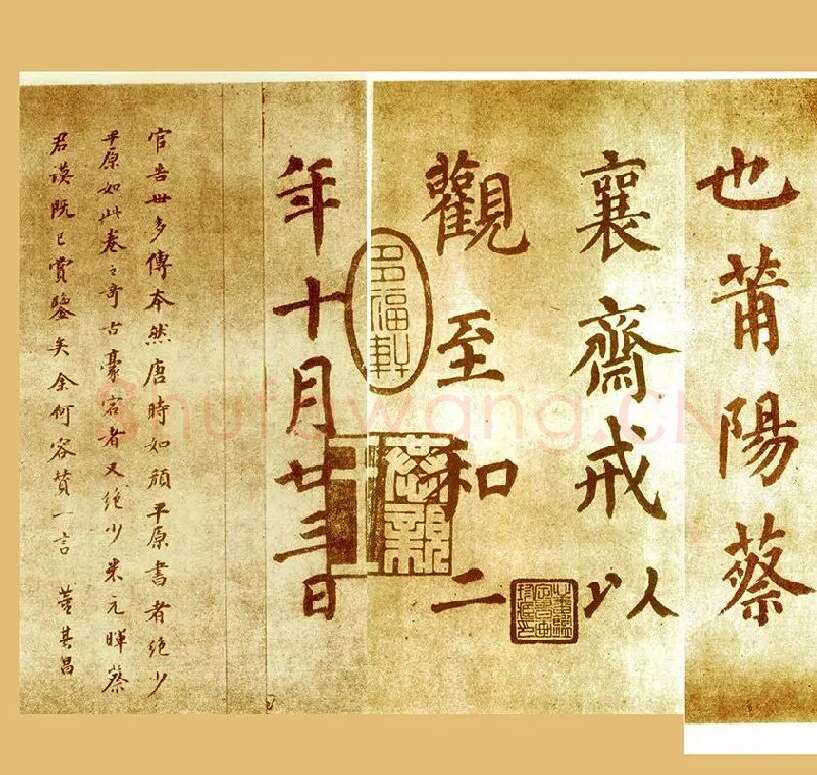 也莆陽蔡
襄齋戒以
觀至和二
年十月廿三日
官告世多傳本然唐時如顏平原書者絕少
平原如此卷之奇古豪宕者又絕少米元暉蔡
君謨既已賞鑒矣余何容贊一言 董其昌
多福軒
恭親王
Shufawang.CN